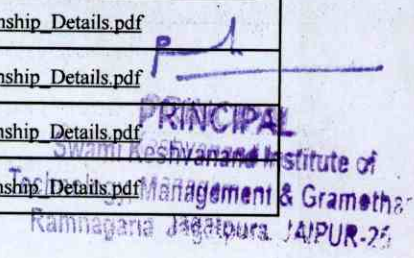 nship_Details.pdf
nship_Details.pdf
nship_Details.pdf
PRINCIPAL
Swami Keshvanand Institute of
nship_Details.pdf
Management & Gramotha
Ramnagaria Jagatpura, JAIPUR-25